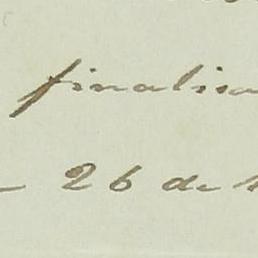 finalisa
26 de